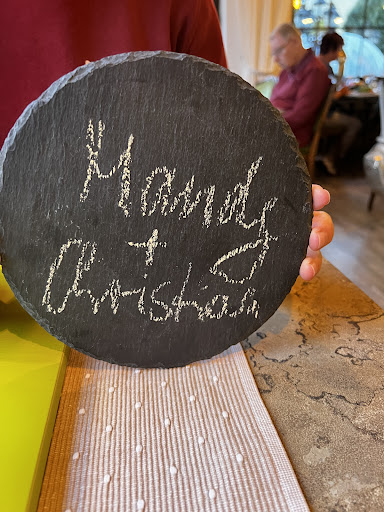 Mandy
+
Christian